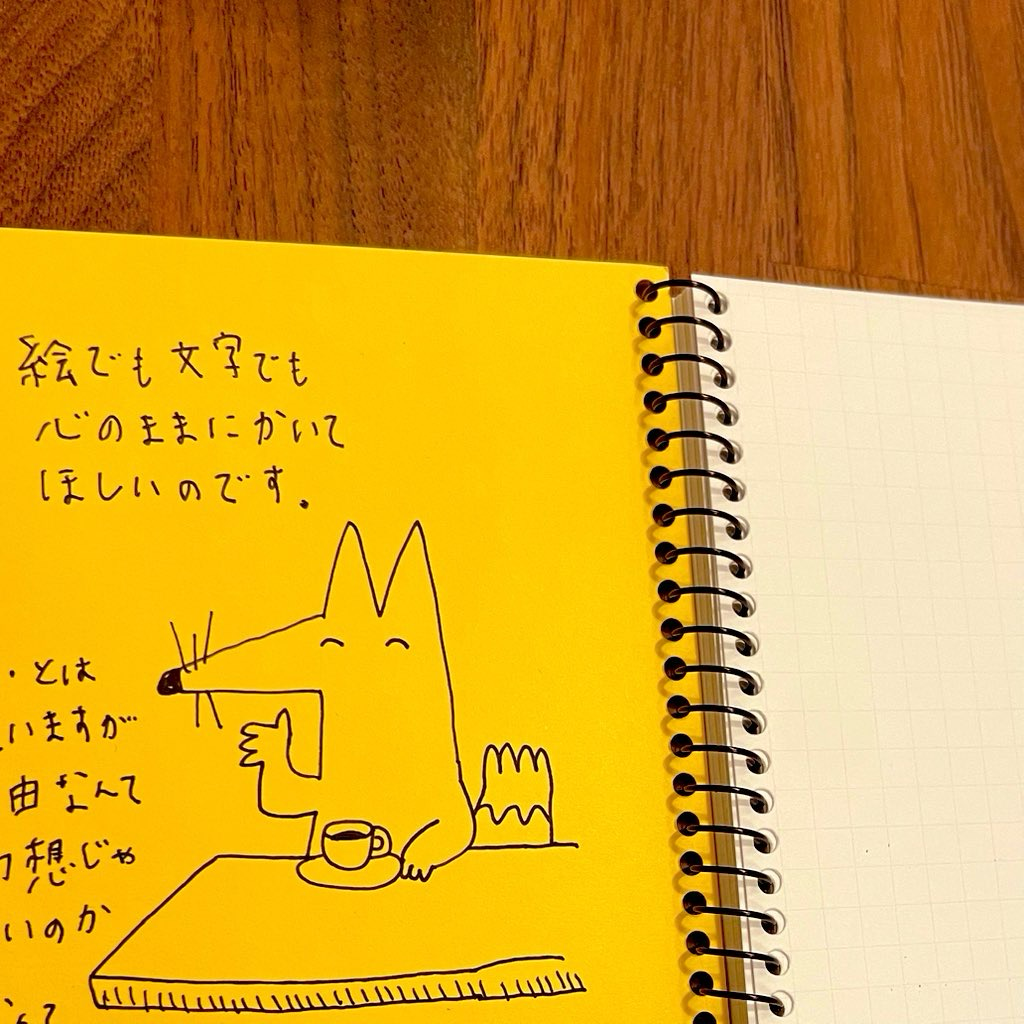 絵でも文字でも
心のままにかいて
ほしいのです。
・とは
いますが
由なんて
想じゃ
いのか